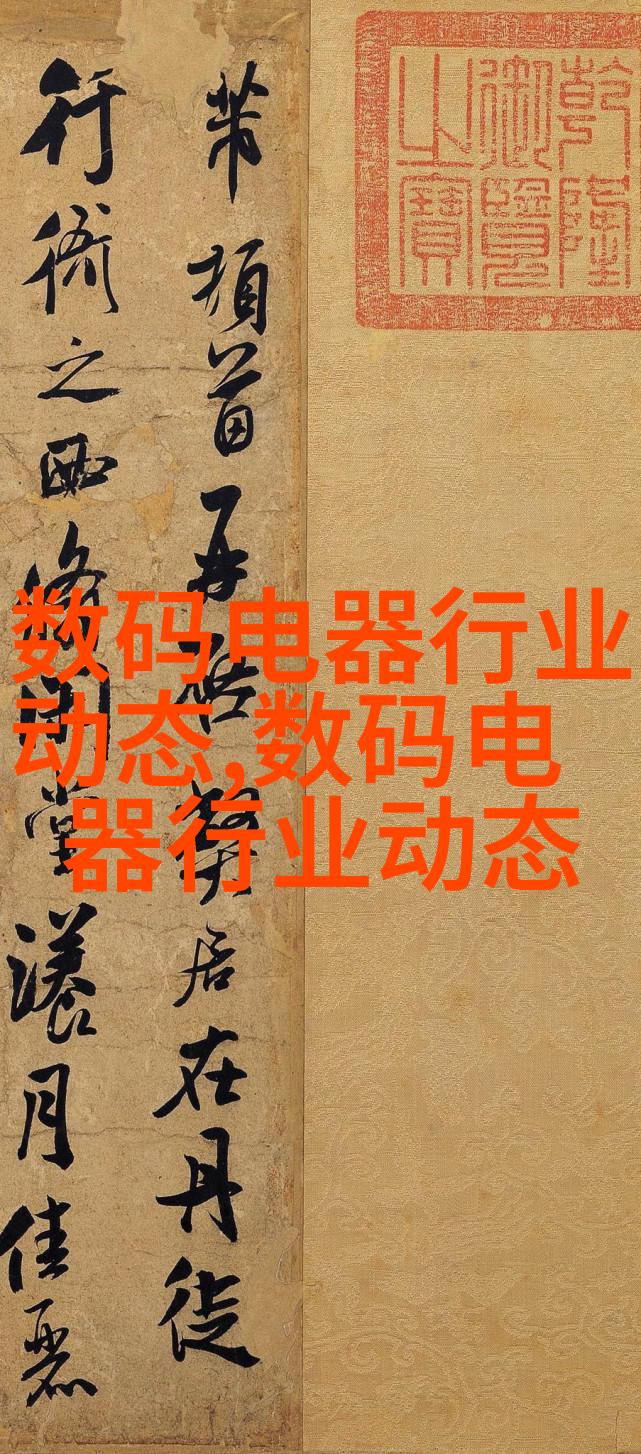 乾隆
御覽
之寶
芾頓首再啓弊居在丹徒
行衙之西翛閑堂瀁月佳麗
数码电器行业
动态,数码电
器行业动态